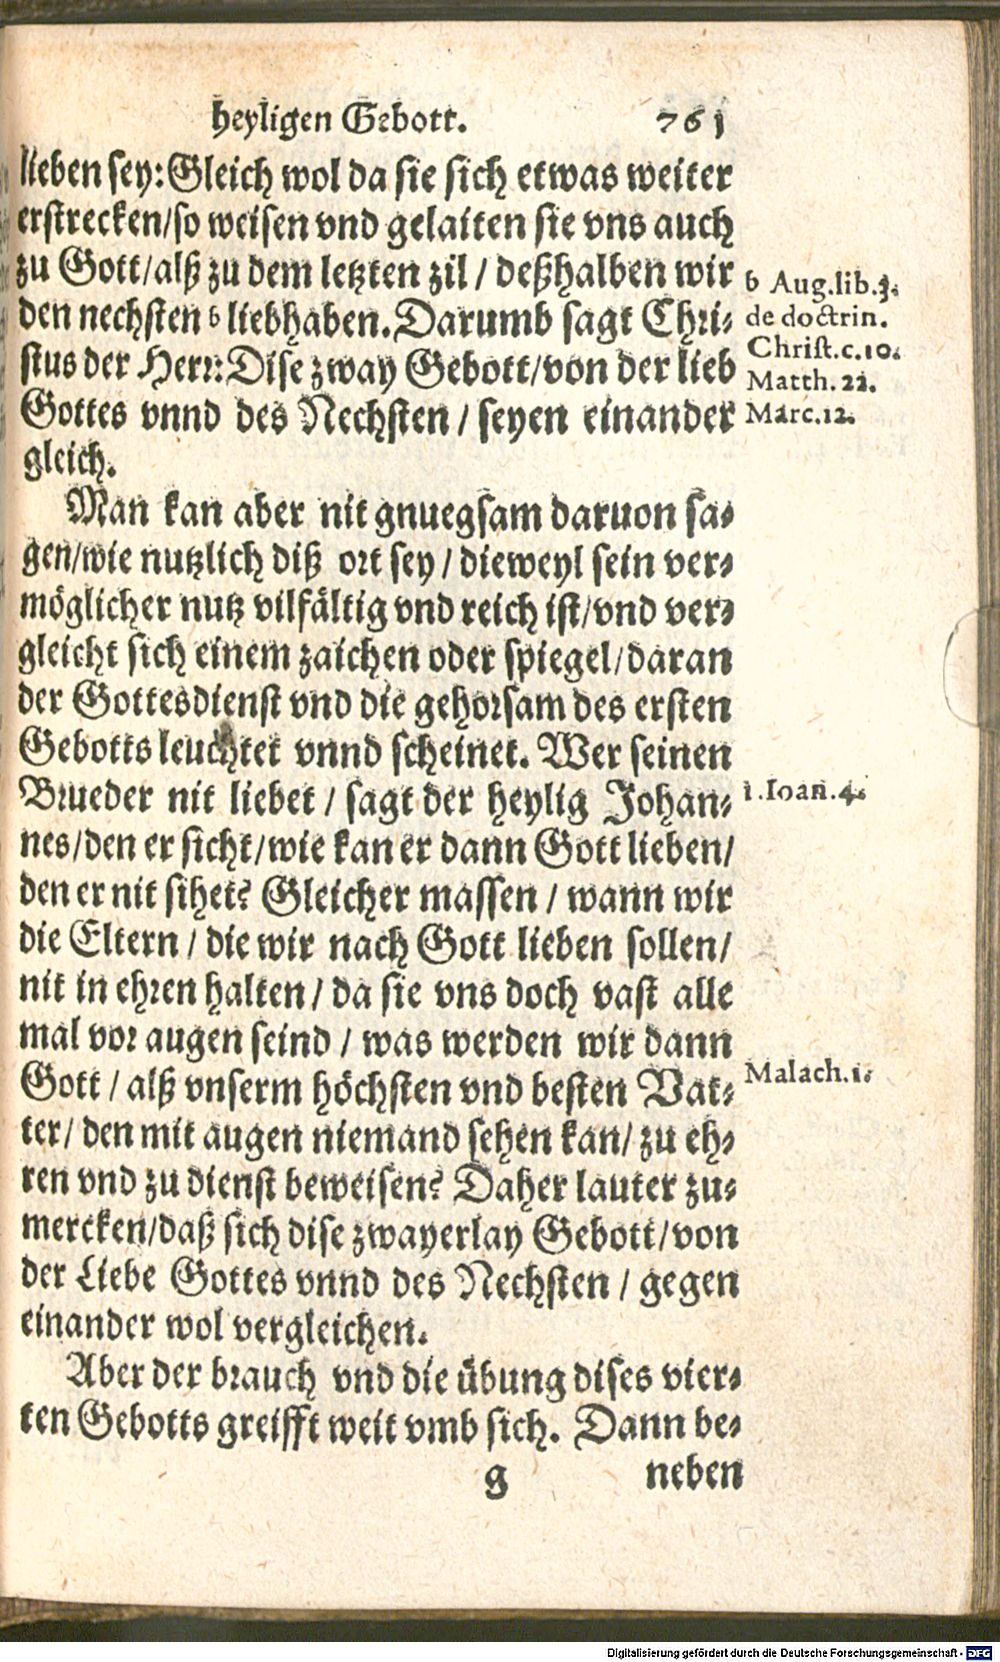 heyligen Gebott. 761
lieben sey: Gleich wol da sie sich etwas weiter
erstrecken/so weisen vnd gelaiten sie vns auch
zu Gott/alß zu dem letzten zil / deßhalben wir
den nechsten b liebhaben. Darumb sagt Chri⸗
stus der Herr: Dise zway Gebott/von der lieb
Gottes vnnd des Nechsten / seyen einander
gleich.
b Aug.lib.3.
de doctrin.
Christ.c.10.
Matth.22.
Marc.12.
Man kan aber nit gnuegsam daruon sa⸗
gen/wie nutzlich diß ort sey / dieweyl sein ver⸗
möglicher nutz vilfältig vnd reich ist/vnd ver⸗
gleicht sich einem zaichen oder spiegel/daran
der Gottesdienst vnd die gehorsam des ersten
Gebotts leuchtet vnnd scheinet. Wer seinen
Brueder nit liebet / sagt der heylig Johan⸗
nes/den er sicht/wie kan er dann Gott lieben/
den er nit sihet? Gleicher massen / wann wir
die Eltern / die wir nach Gott lieben sollen/
nit in ehren halten / da sie vns doch vast alle
mal vor augen seind / was werden wir dann
Gott / alß vnserm höchsten vnd besten Vat⸗
ter/ den mit augen niemand sehen kan/ zu eh⸗
ren vnd zu dienst beweisen? Daher lauter zu⸗
mercken/daß sich dise zwayerlay Gebott/von
der Liebe Gottes vnnd des Nechsten / gegen
einander wol vergleichen.
1.Ioan.4.
Malach.1.
Aber der brauch vnd die übung dises vier⸗
ten Gebotts greifft weit vmb sich. Dann be⸗
g neben
Digitalisierung gefördert durch die Deutsche Forschungsgemeinschaft - DFG